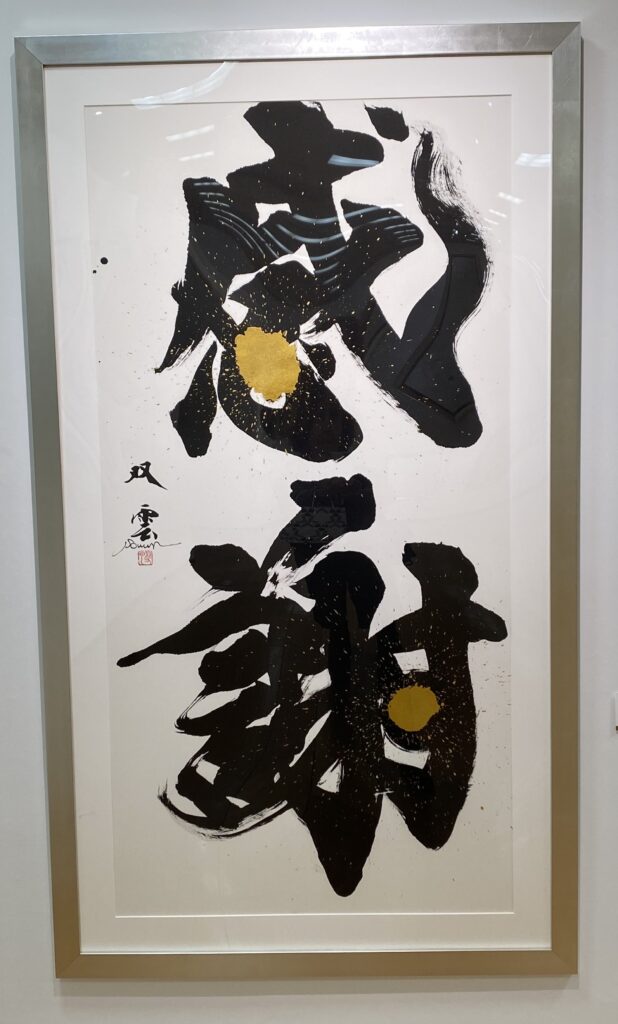 感
謝
双
雲
Souun